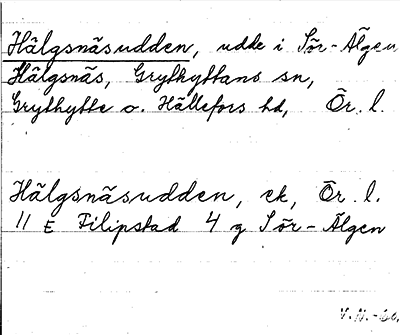 Hälgsnäsudden, udde i Sör-Älgen
Hälgsnäs, Grythyttans sn,
Grythytte o. Hällefors hd, Ör. l.
Hälgsnäsudden, ek, Ör. l.
11 E Filipstad 4 g Sör-Älgen
V.N.-60.